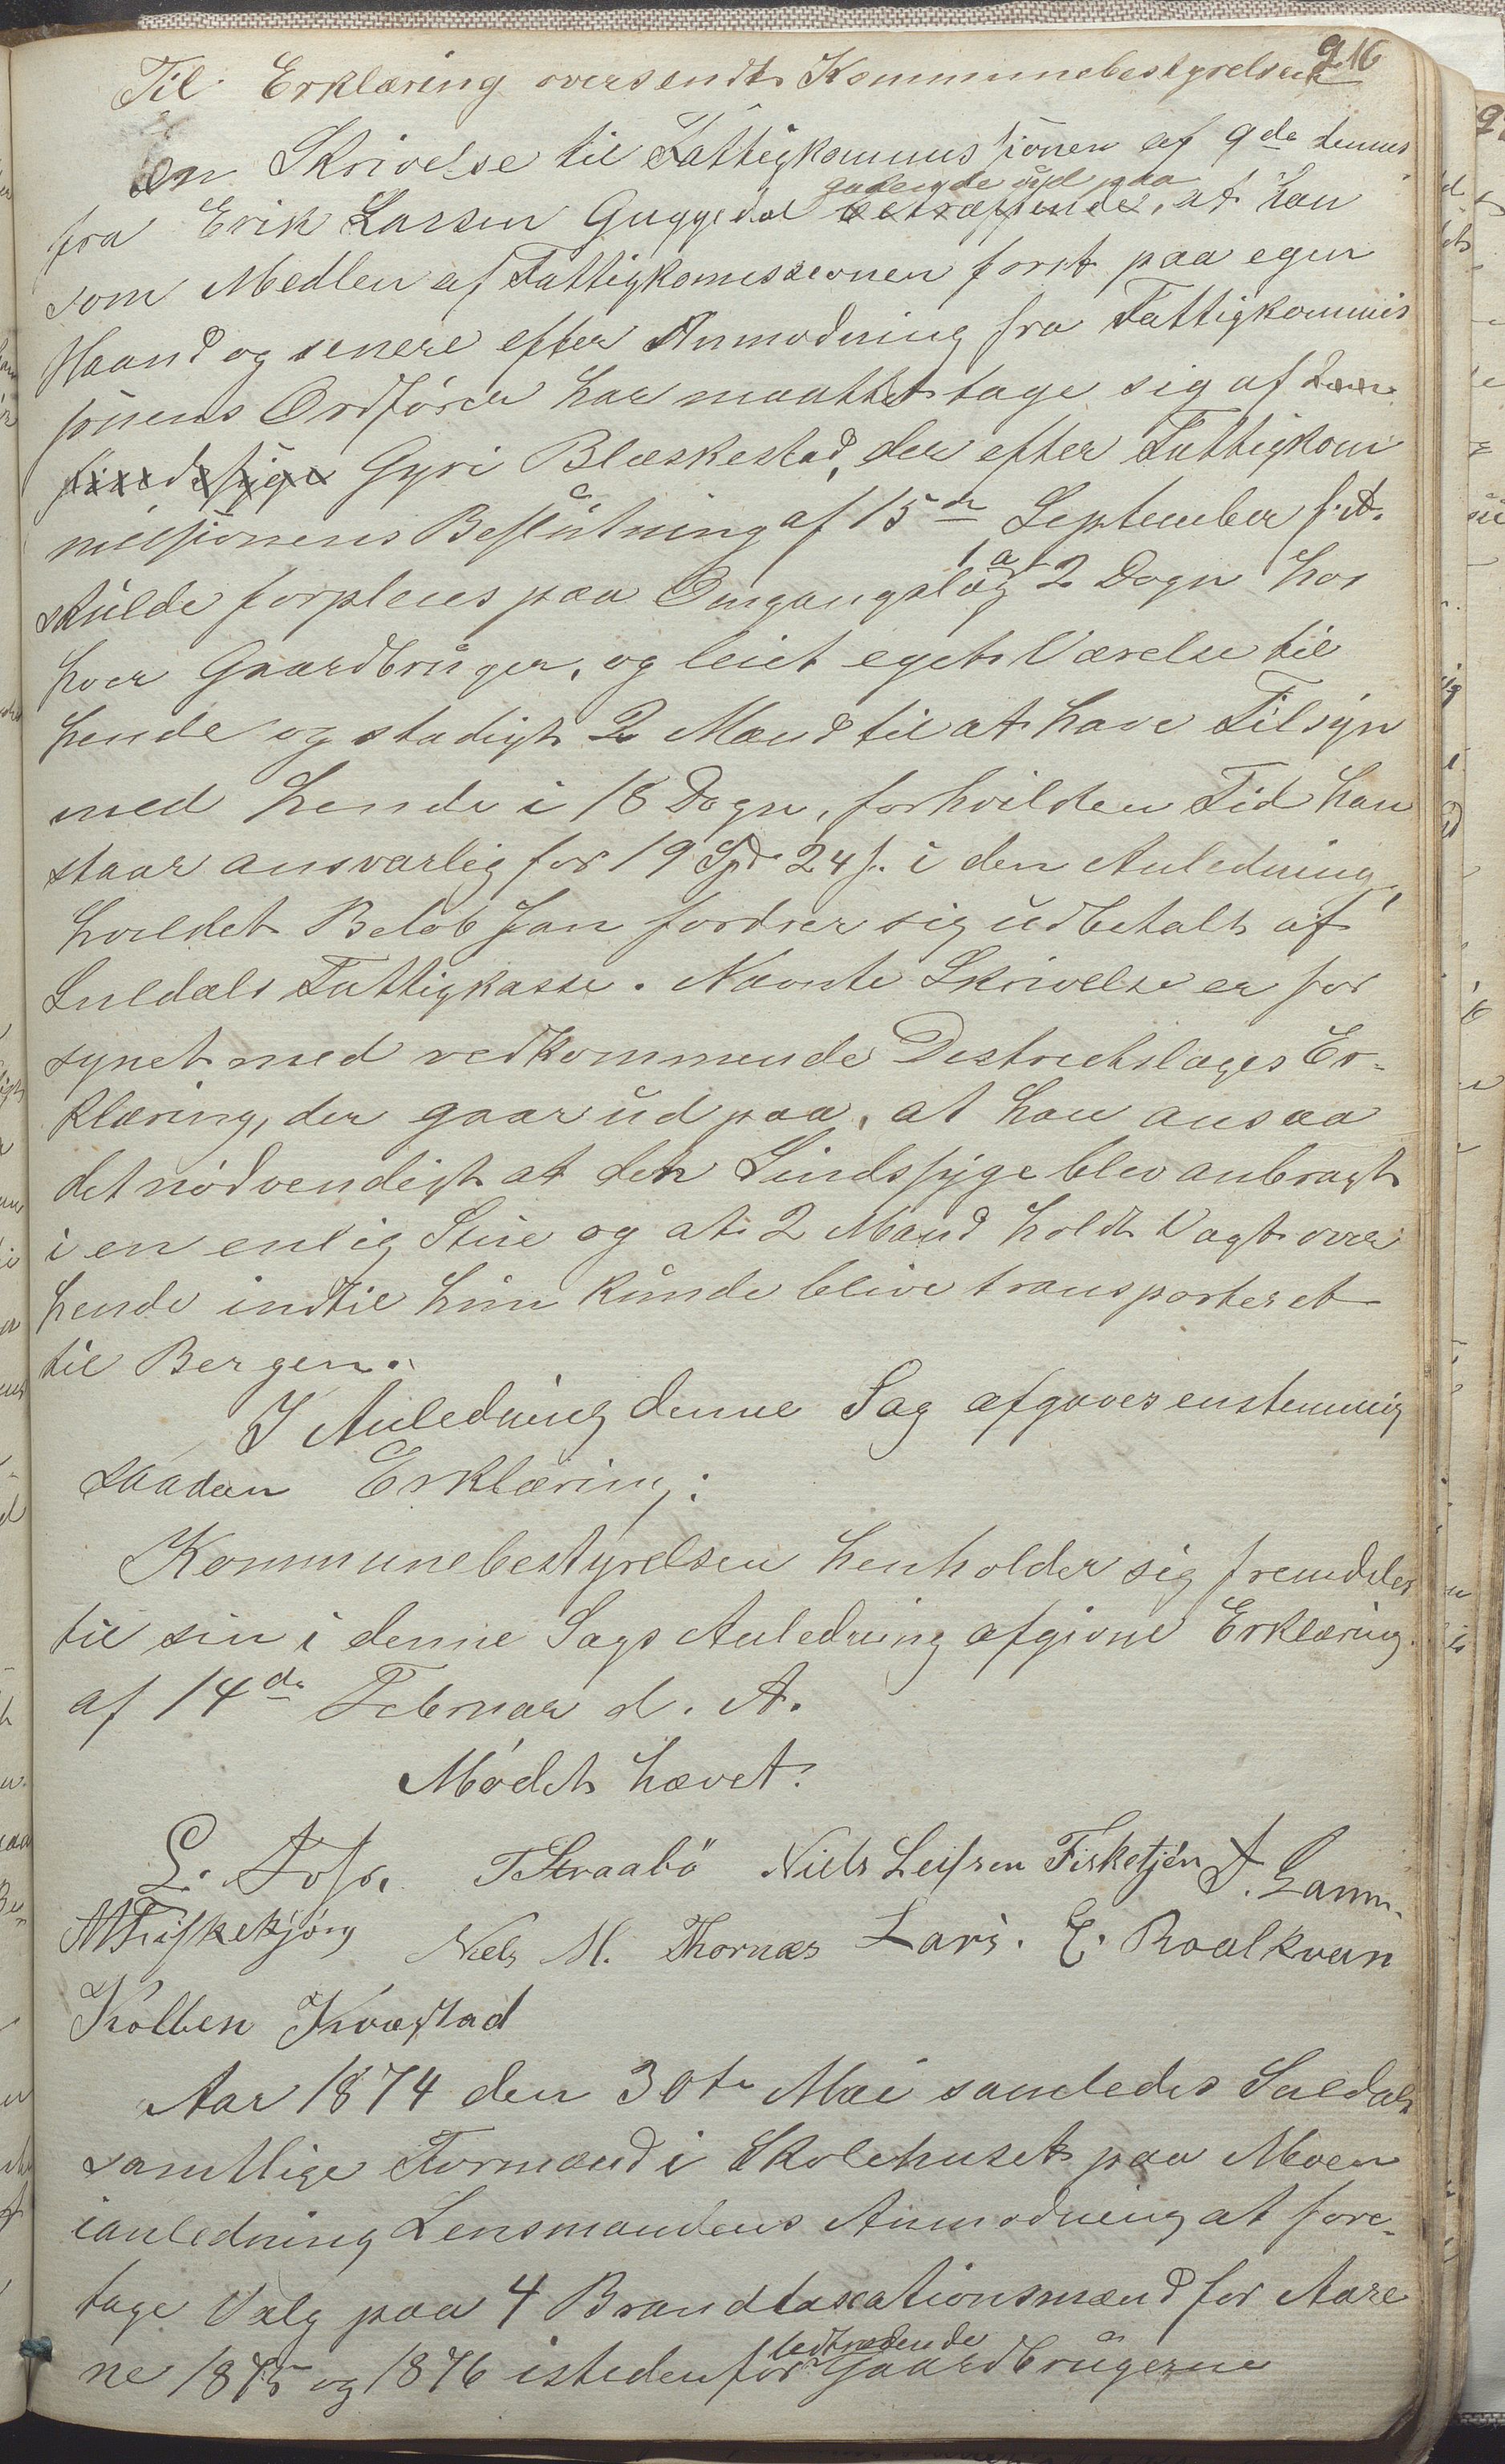 916
Til Erklæring oversendt Kommunebestyrelsen
en Skrivelse til Fattigkommissionen af 9de dennes
fra Erik Larsen Guggedal gaaende ud paa, at han
som Medlem af Fattigkomissionen først paa egen
Haand og senere efter Anmodning fra Fattigkommis
sionens Ordfører har maattet tage sig af den
sindssyge Gyri Bleskestad, der efter Fattigkom
missionens Beslutning af 15de September f. A.
skulde forpleies paa Omgangslæg 1 a 2 Døgn hos
hver Gaardbruger, og leiet eget Værelse til
hende og stadigt 2 Mand til at have Tilsyn
med hende i 18 Døgn, forhvilken Tid han
staar ansvarlig for 19 Spd 24 s. i den Anledning,
hvilket Beløb han fordrer sig udbetalt af
Suldals Fattigkasse. Nævnte Skrivelse er for
synet med vedkommende Destrictslæges Er-
klæring, der gaar ud paa, at han ansaa
det nødvendigt at den Sindssyge blev anbragt
i en enlig Stue og at 2 Mand holdt Vagt over
hende indtil hun kunde blive transporteret
til Bergen.
I Anledning denne Sag afgaves enstemmig
saadan Erklæring:
Kommunebestyrelsen henholder sig fremdeles
til sin i denne Sags Anledning afgivne Erklæring
af 14de Februar d. A.
Mødet hævet.
L. Tofs. T Straabø Niels Leifsen Fisketjøn A. Larm.
Fiskekjøn Niels M. Thornæs Lars. E. Roalkvam
Kolben Kvæstad
Aar 1874 den 30te Mai samledes Suldals
samtlige Formænd i Skolehuset paa Moen
ianledning Lensmandens Anmodning at fore-
tage Valg paa 4 Brandtaxationsmænd for Aare
ne 1875 og 1876 istedenfor udtrædende Gaardbrugerne